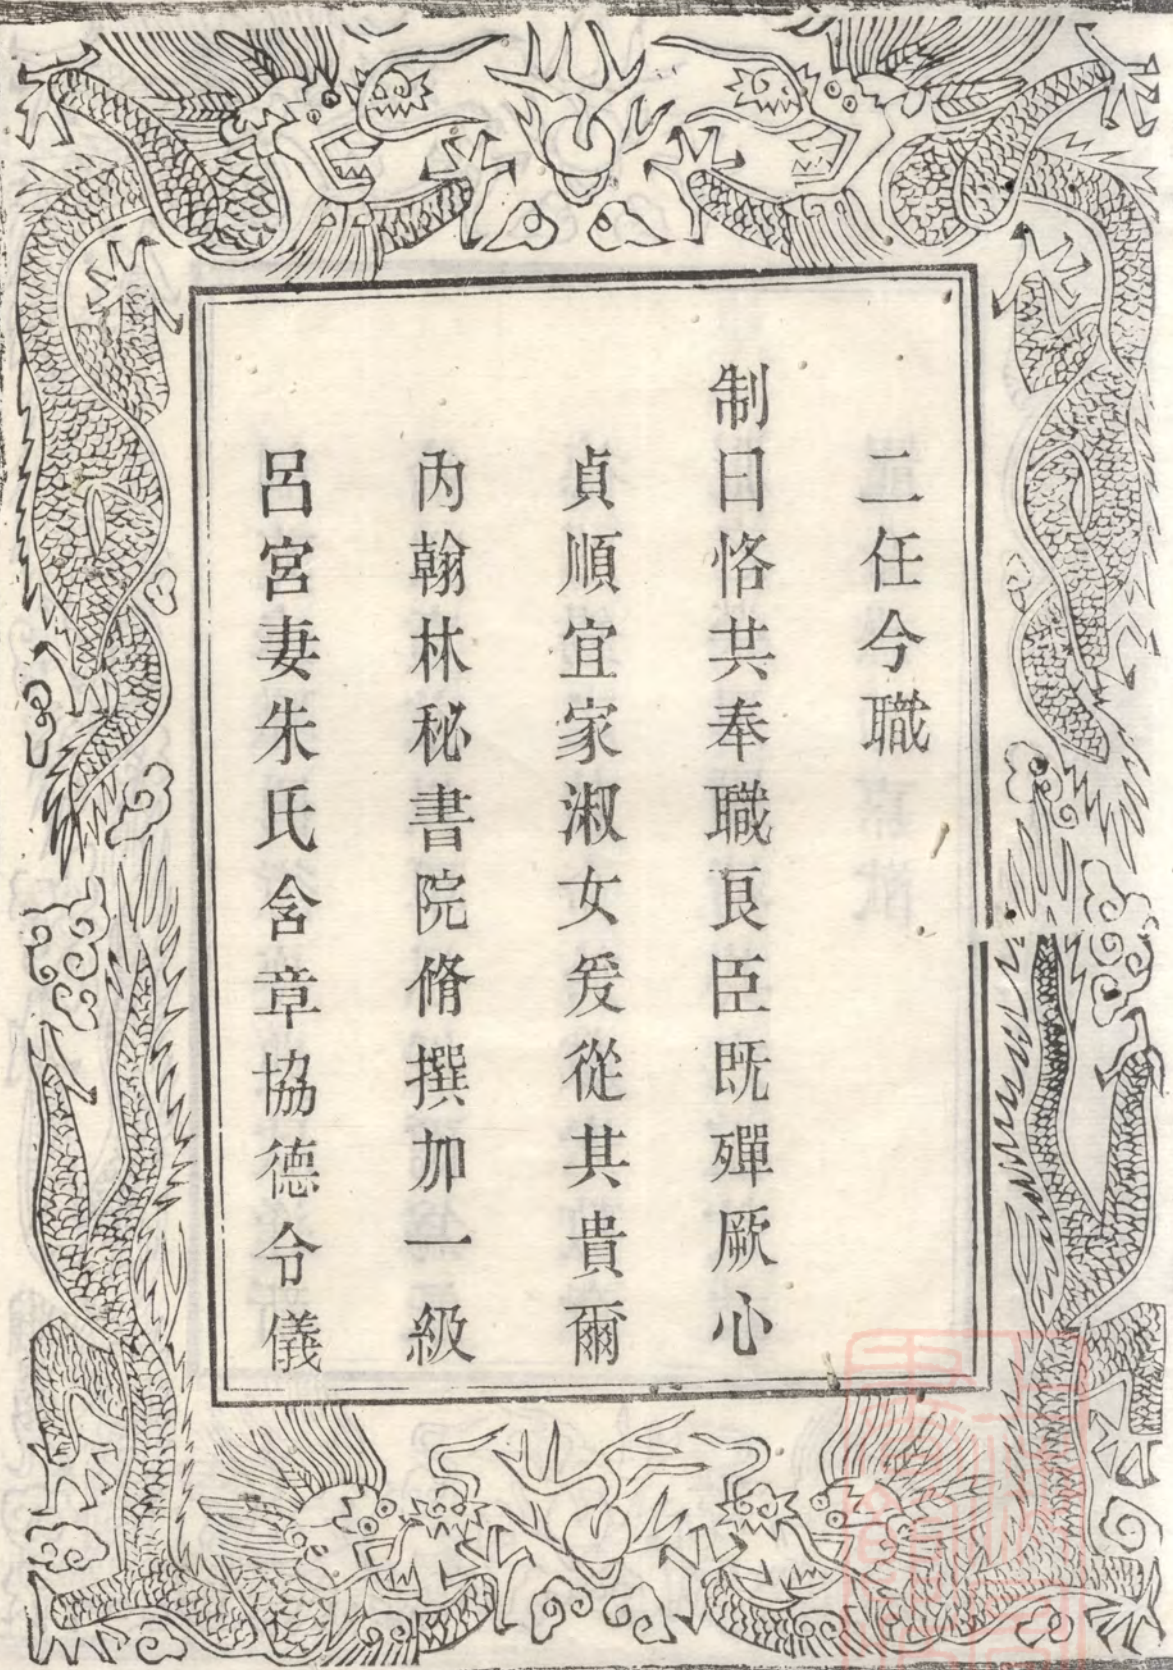 二任今職
制曰恪共奉職良臣既殫厥心
貞順宜家淑女爰從其貴爾
內翰林秘書院脩撰加一級
呂宮妻朱氏含章協德令儀